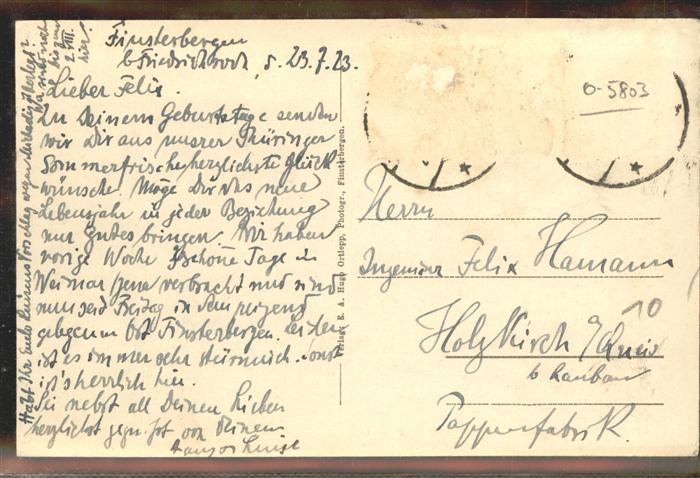 Finsterbergen
b Friedrichroda, d. 23.7.23.
Lieber Felix.
Zu Deinem Geburtstage senden
wir Dir aus unsrer Thüringer
Sommerfrische herzlichste Glück
wünsche. Möge Dir das neue
Lebensjahr in jeder Beziehung
nur Gutes bringen. Wir haben
vorige Woche schöne Tage in
Weimar Jena verbracht und sind
nun seit Freitag in dem reizend
gelegenen Ort Finsterbergen. Leider
ist es immer sehr stürmisch. Sonst
ist's herrlich hier.
Sei nebst all Deinen Lieben
herzlichst gegrüßt von Deinem
Hans u Luise
Habt Ihr Euch unsern Vorschlag wegen überlegt?
Wir sind noch
bis zum
2. VIII.
hier!
Verlag: E. A. Hugo Ortlepp, Photogr., Finsterbergen.
0-5803
Herrn
Ingenieur Felix Hamann
Holzkirch a/Queis
b Lauban
Pappenfabrik.
10